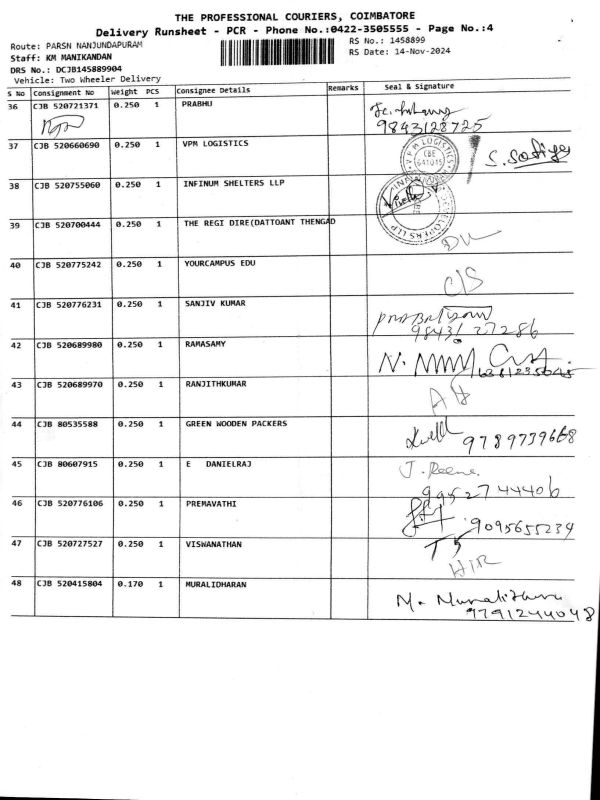 THE PROFESSIONAL COURIERS, COIMBATORE
Delivery Runsheet - PCR - Phone No.:0422-3505555 - Page No.:4
Route: PARSN NANJUNDAPURAM
RS No.: 1458899
Staff: KM MANIKANDAN
RS Date: 14-Nov-2024
DRS No.: DCJB145889904
Vehicle: Two Wheeler Delivery
S No Consignment No Weight PCS Consignee Details Remarks Seal & Signature
36 CJB 520721371 0.250 1 PRABHU
9843128725
37 CJB 520660690 0.250 1 VPM LOGISTICS
VPM LOGISTICS CBE 641015
38 CJB 520755060 0.250 1 INFINUM SHELTERS LLP
DEVELOPERS LLP
39 CJB 520700444 0.250 1 THE REGI DIRE(DATTOANT THENGAD
40 CJB 520775242 0.250 1 YOURCAMPUS EDU
C/S
41 CJB 520776231 0.250 1 SANJIV KUMAR
98431 27286
42 CJB 520689980 0.250 1 RAMASAMY
43 CJB 520689970 0.250 1 RANJITHKUMAR
44 CJB 80535588 0.250 1 GREEN WOODEN PACKERS
9789739668
45 CJB 80607915 0.250 1 E DANIELRAJ
J. Reena
9952744406
46 CJB 520776106 0.250 1 PREMAVATHI
9095655234
47 CJB 520727527 0.250 1 VISWANATHAN
48 CJB 520415804 0.170 1 MURALIDHARAN
M. Muralidharan
9791244048